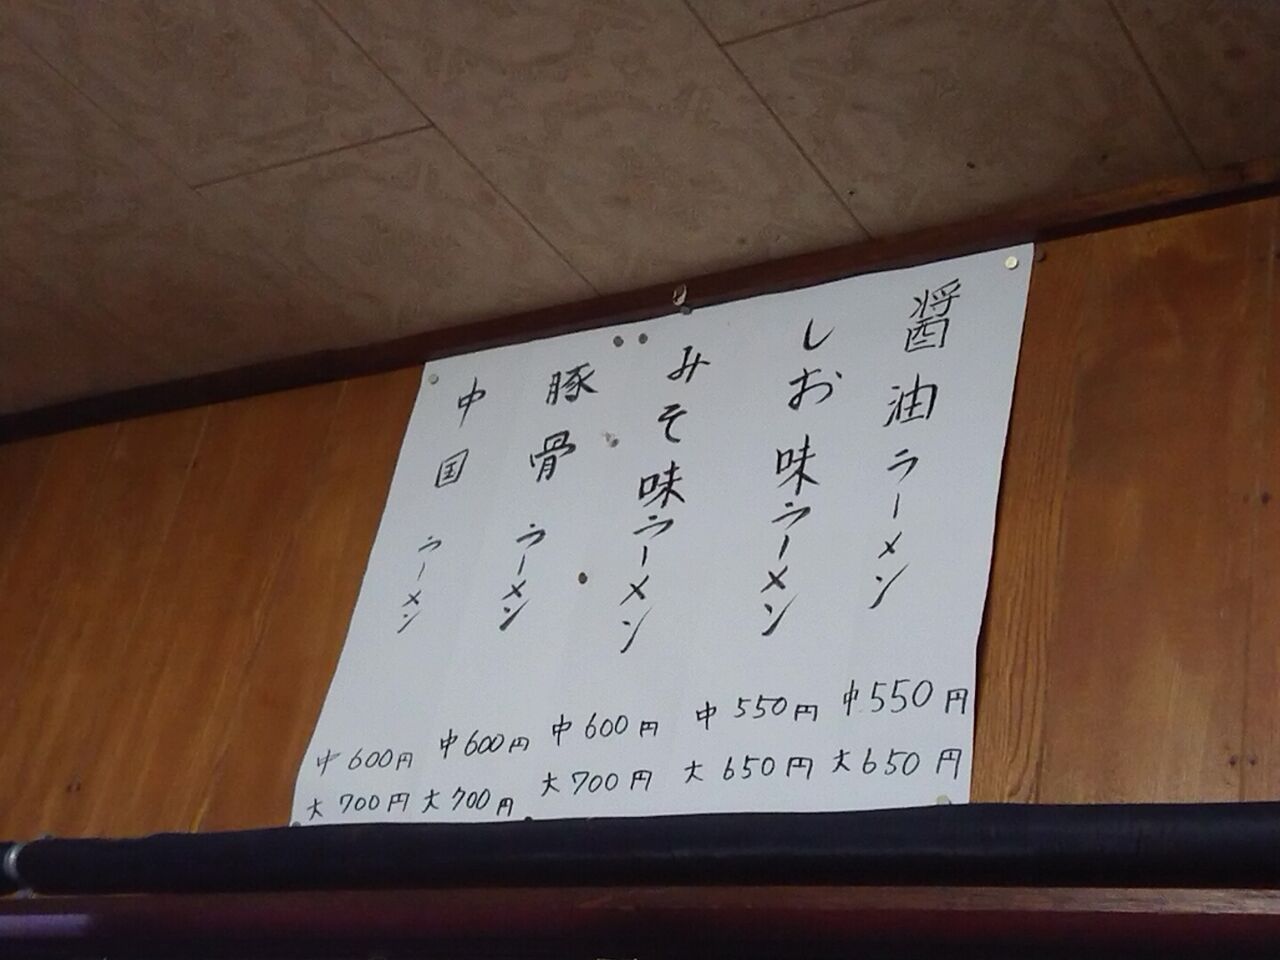 醤油ラーメン
中550円
大650円
しお味ラーメン
中550円
大650円
みそ味ラーメン
中600円
大700円
豚骨ラーメン
中600円
大700円
中国ラーメン
中600円
大700円